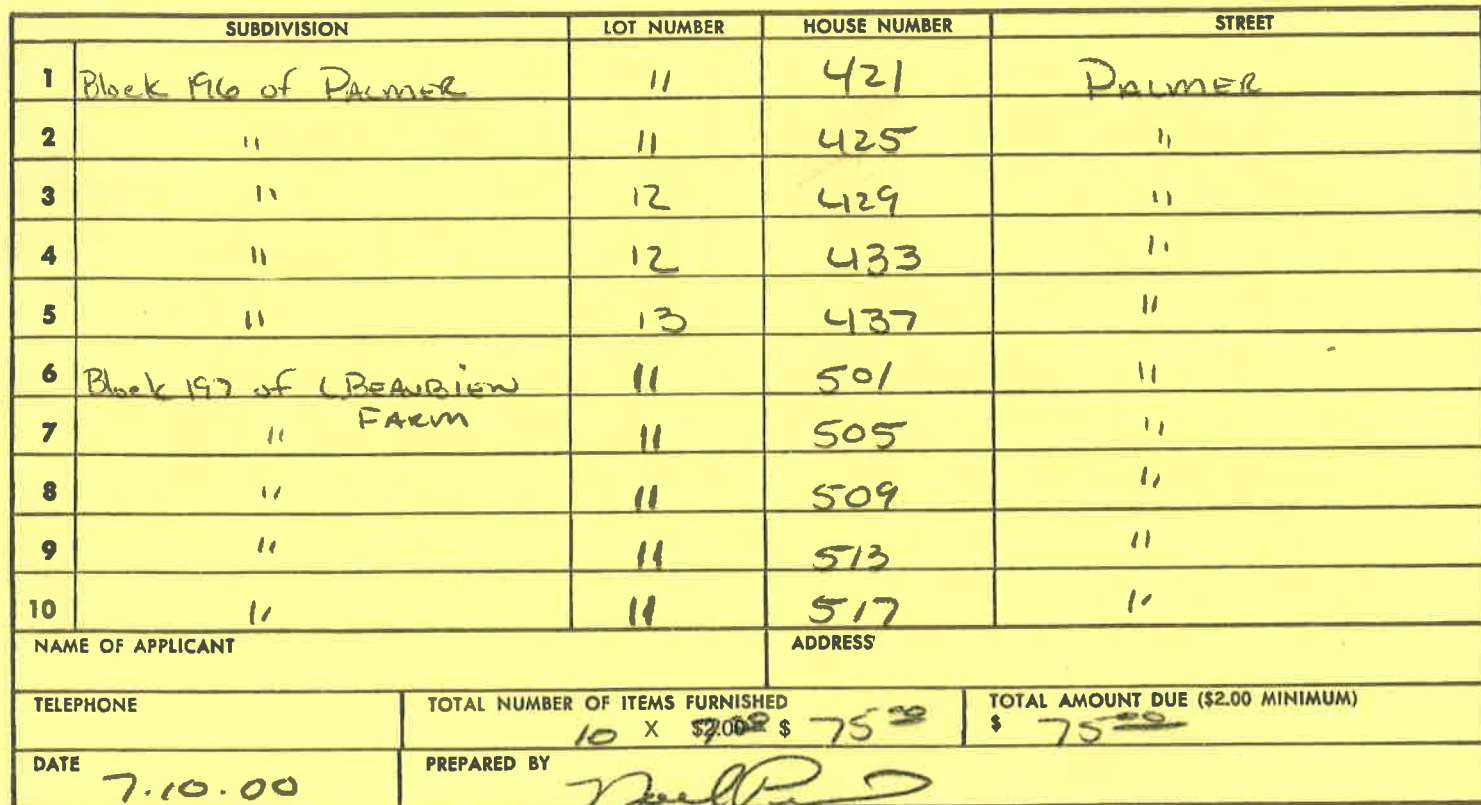 SUBDIVISION LOT NUMBER HOUSE NUMBER STREET
1 Block 196 of PALMER 11 421 PALMER
2 " 11 425 "
3 " 12 429 "
4 " 12 433 "
5 " 13 437 "
6 Block 197 of L BEAUBIEN 11 501 "
FARM
7 " 11 505 "
8 " 11 509 "
9 " 11 513 "
10 " 11 517 "
NAME OF APPLICANT ADDRESS
TELEPHONE TOTAL NUMBER OF ITEMS FURNISHED TOTAL AMOUNT DUE ($2.00 MINIMUM)
10 X $ 75 00 $ 75 00
DATE PREPARED BY
7.10.00